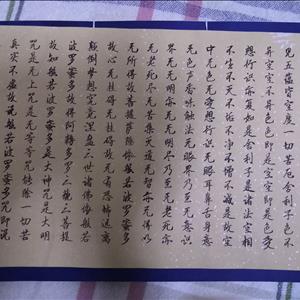 見五蘊皆空度一切苦厄舍利子色不
異空空不異色色即是空空即是色受
想行識亦復如是舍利子是諸法空相
不生不灭不垢不净不增不減是故空
中无色无受想行識无眼耳鼻舌身意
无色声香味触法无眼界乃至无意識
界无无明亦无无明尽乃至无老死亦
无老死尽无苦集灭道无智亦无得以
无所得故菩提薩埵依般若波羅蜜多
故心无挂碍无挂碍故无有恐怖遠離
顛倒夢想究竟涅盘三世諸佛依般若
波羅蜜多故得阿耨多羅三藐三菩提
故知般若波羅蜜多是大神咒是大明
咒是无上咒是无等等咒能除一切苦
真实不虚故説般若波羅蜜多咒即説